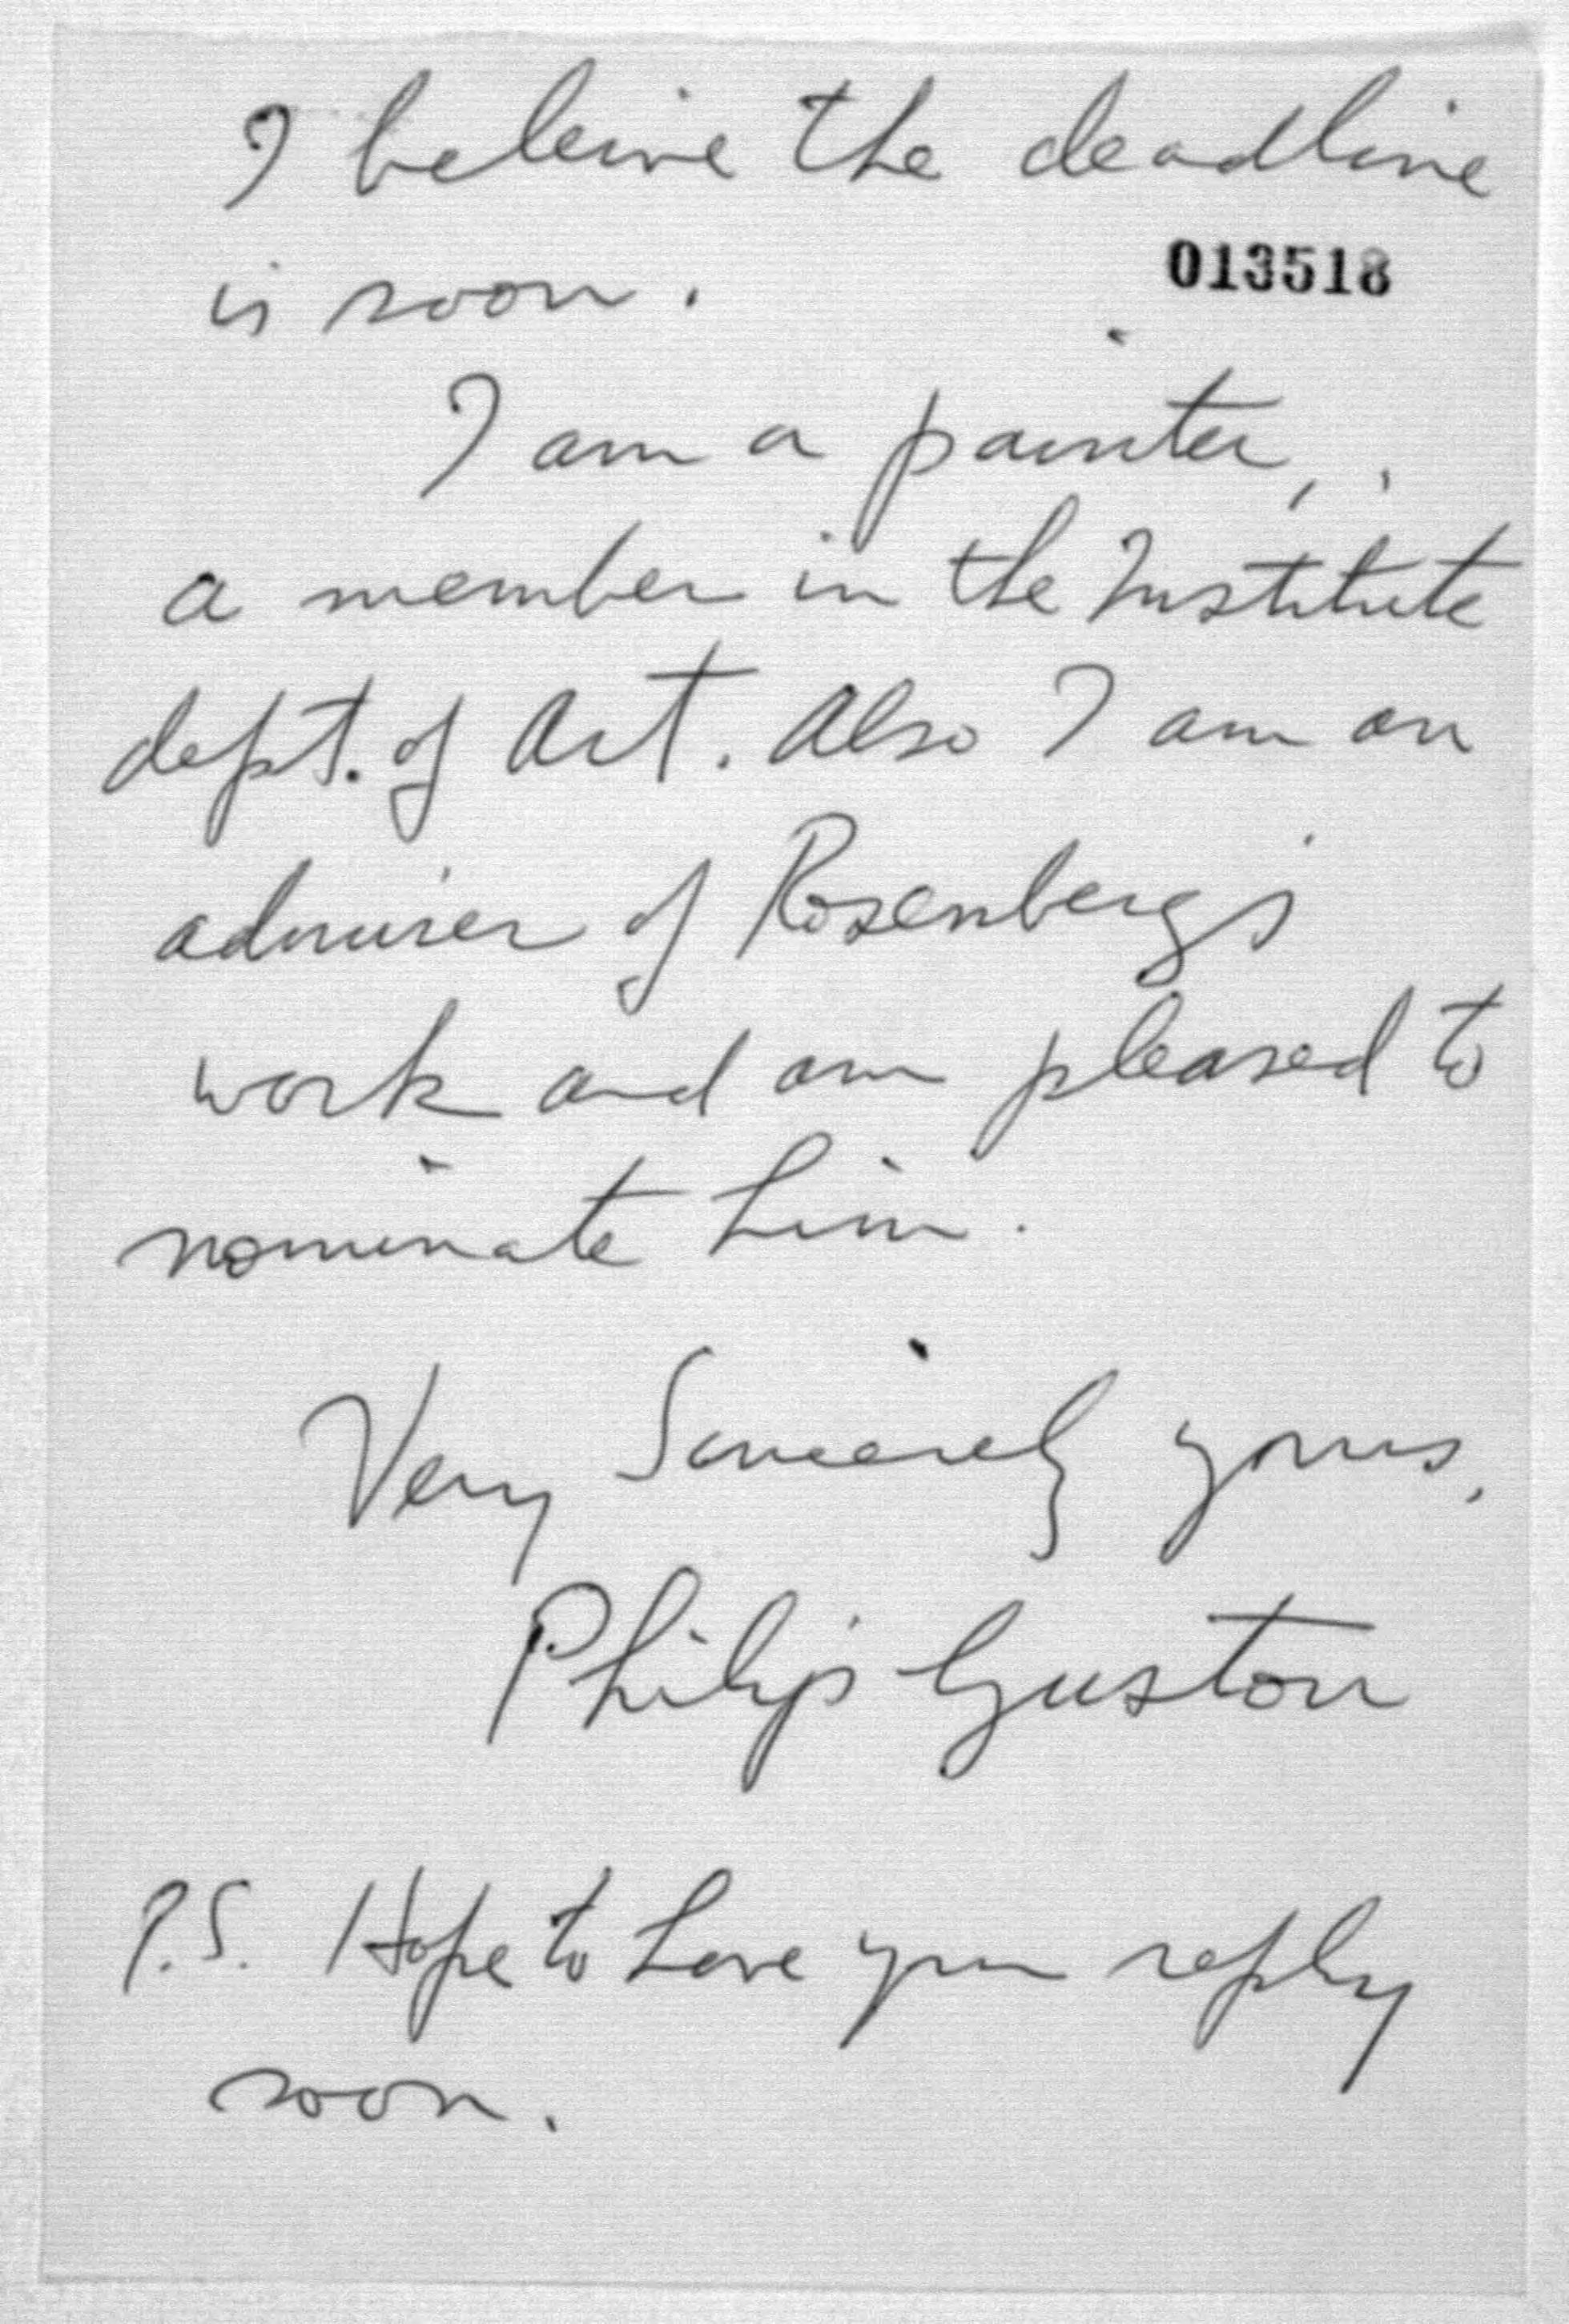 I beleive the deadline
013518
is soon.
I am a painter,
a member in the Institute
dept. of Art. Also I am an
admirer of Rosenberg's
work and am pleased to
nominate him.
Very Sincerely yours,
Philip Guston
P.S. Hope to have your reply
soon.